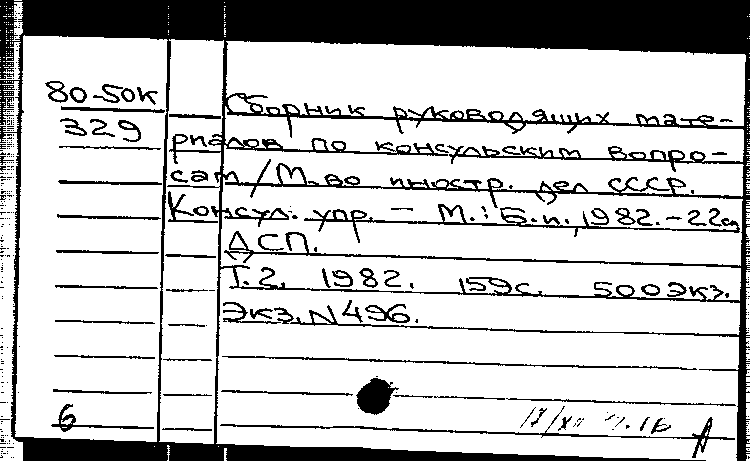 80-50К Сборник руководящих мате-
329 риалов по консульским вопро-
сам / М-во иностр. дел СССР.
Консул. упр. - М.: Б.и., 1982. - 22см
ДСП.
Т.2. 1982. 159с. 500экз.
Экз. N496.
6